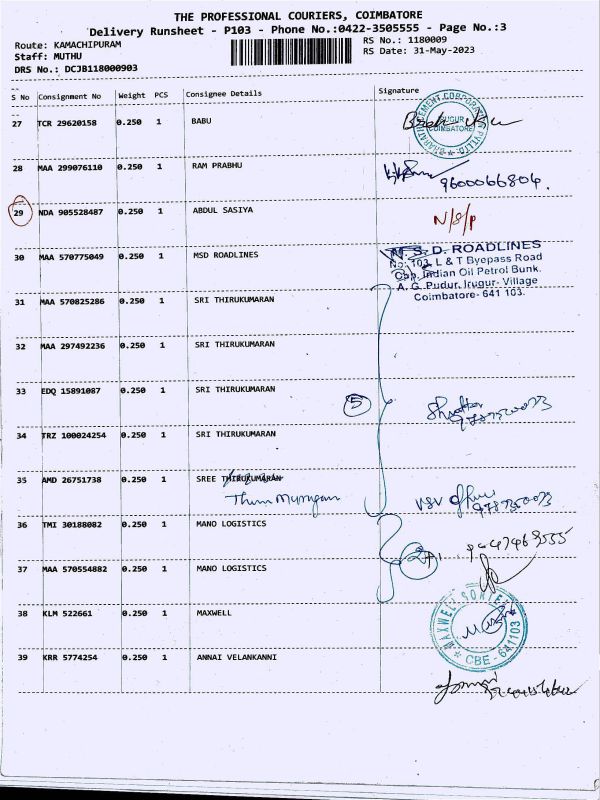 THE PROFESSIONAL COURIERS, COIMBATORE
Delivery Runsheet - P103 - Phone No.:0422-3505555 - Page No.:3
Route: KAMACHIPURAM
RS No.: 1180009
Staff: MUTHU
RS Date: 31-May-2023
DRS No.: DCJB118000903
S No Consignment No Weight PCS Consignee Details Signature
27 TCR 29620158 0.250 1 BABU
COIMBATORE
28 MAA 299076110 0.250 1 RAM PRABHU
9600066804.
29 NDA 905528487 0.250 1 ABDUL SASIYA
N/S/P
30 MAA 570775049 0.250 1 MSD ROADLINES
S. D. ROADLINES
No. 103, L & T Byepass Road
Opp. Indian Oil Petrol Bunk.
A. G. Pudur, Irugur- Village
Coimbatore- 641 103.
31 MAA 570825286 0.250 1 SRI THIRUKUMARAN
32 MAA 297492236 0.250 1 SRI THIRUKUMARAN
33 EDQ 15891087 0.250 1 SRI THIRUKUMARAN
5
34 TRZ 100024254 0.250 1 SRI THIRUKUMARAN
35 AMD 26751738 0.250 1 SREE THIRUKUMARAN
36 TMI 30188082 0.250 1 MANO LOGISTICS
37 MAA 570554882 0.250 1 MANO LOGISTICS
38 KLM 522661 0.250 1 MAXWELL
MAXWELL
CBE - 641103
39 KRR 5774254 0.250 1 ANNAI VELANKANNI